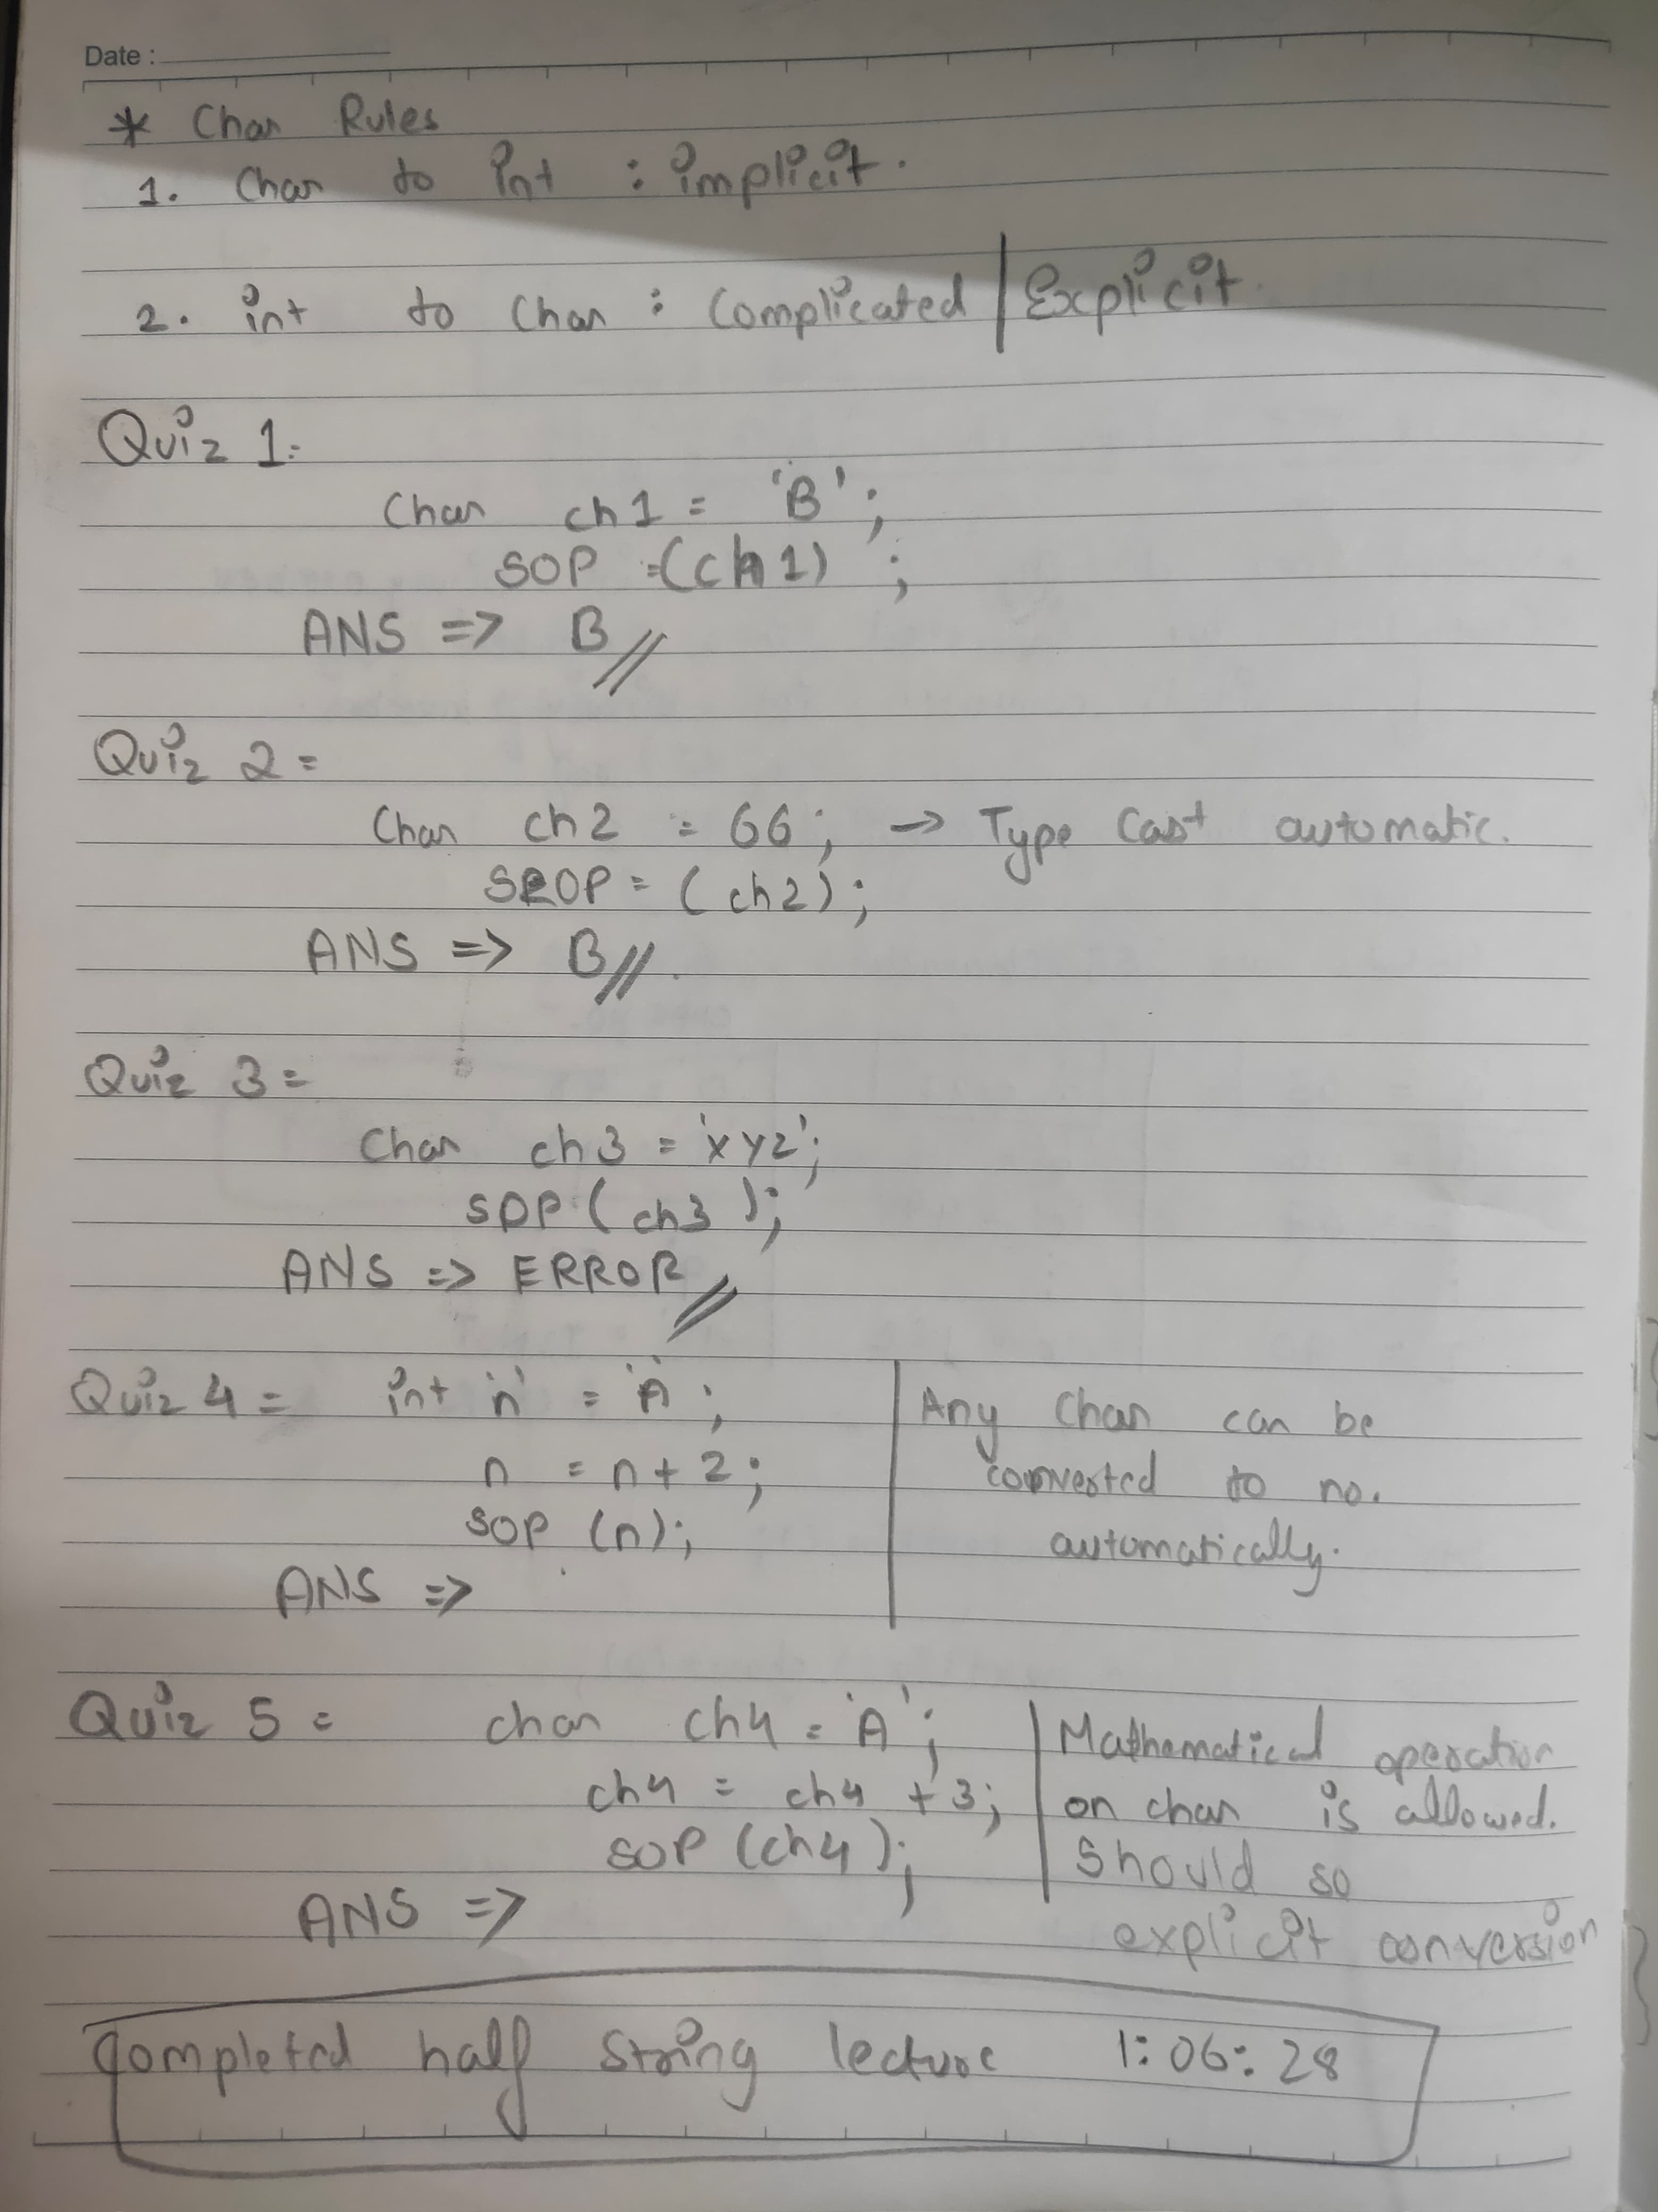 Date :
* Char Rules
1. Char to int : implicit.
2. int to Char : Complicated | Explicit.
Quiz 1:-
Char ch1 = 'B';
SOP =(ch1) ;
ANS => B //
Quiz 2 =
Char ch2 = 66; -> Type Cast automatic.
SOP = (ch2);
ANS => B //.
Quiz 3 =
Char ch3 = 'xyz';
SOP (ch3);
ANS => ERROR //
Quiz 4 = int 'n' = 'A';
n = n + 2;
SOP (n);
ANS =>
Any Char can be
converted to no.
automatically.
Quiz 5 = char ch4 = 'A';
ch4 = ch4 + 3;
SOP (ch4);
ANS =>
Mathematical operation
on char is allowed.
Should so
explicit conversion
Completed half String lecture 1:06:28